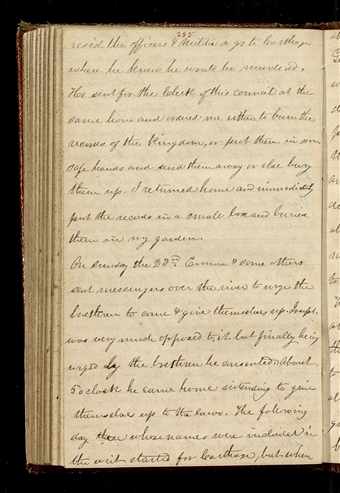 285
resist the officers & militia or go to Carthage
where he knew he would be murdered.
He sent for the Clerk of this council at the
same hour and ordered me either to burn the
records of the kingdom, or put them in some
safe hands and send them away or else bury
them up. I returned home and immediately
put the records in a small box and buried
them in my garden.
On Sunday the 23rd Emma & some others
sent messengers over the river to urge the
brethren to come & give themselves up. Joseph
was very much opposed to it but finally being
urged by the brethren he consented. About
5 o clock he came home intending to give
themselves up to the laws. The following
day whose names were included in
the writ started for Carthage, but when